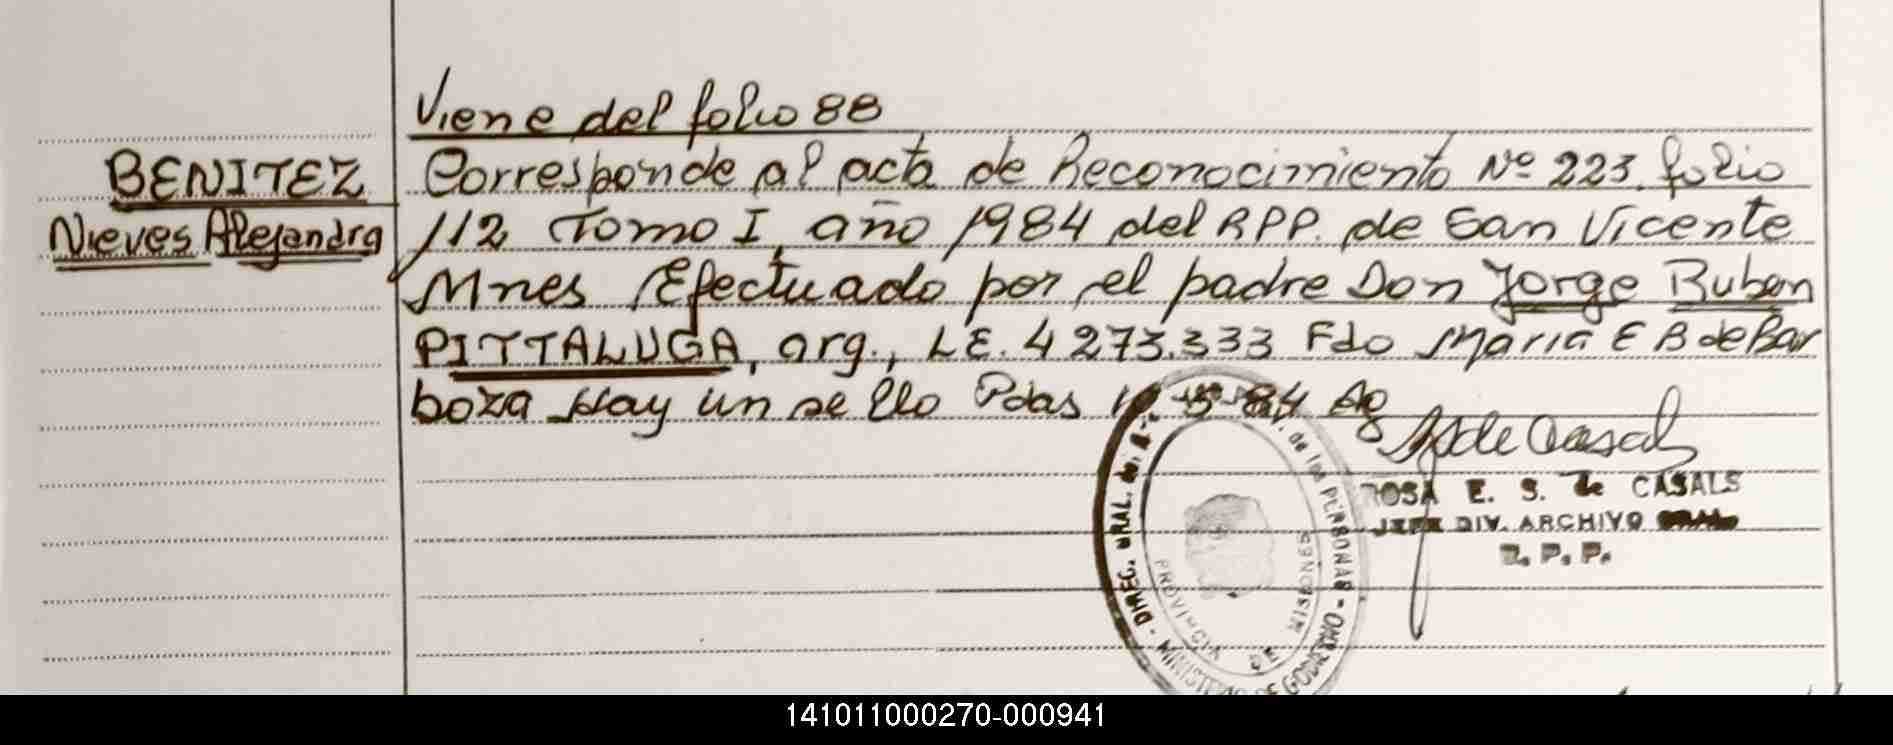 Viene del folio 88
BENITEZ
Nieves Alejandra
Corresponde al acta de Reconocimiento Nº 223. folio
112 Tomo I, año 1984 del RPP. de San Vicente
Mnes Efectuado por el padre Don Jorge Ruben
PITTALUGA, arg., L.E. 4 273.333 Fdo Maria E B de Bar
boza Hay un sello Pdas 84 Ag
S de Casals
ROSA E. S. de CASALS
JEFE DIV. ARCHIVO GRAL
R. P. P.
DIREC. GRAL. de las PERSONAS
PROVINCIA DE MISIONES
MINISTERIO DE GOBIERNO
141011000270-000941